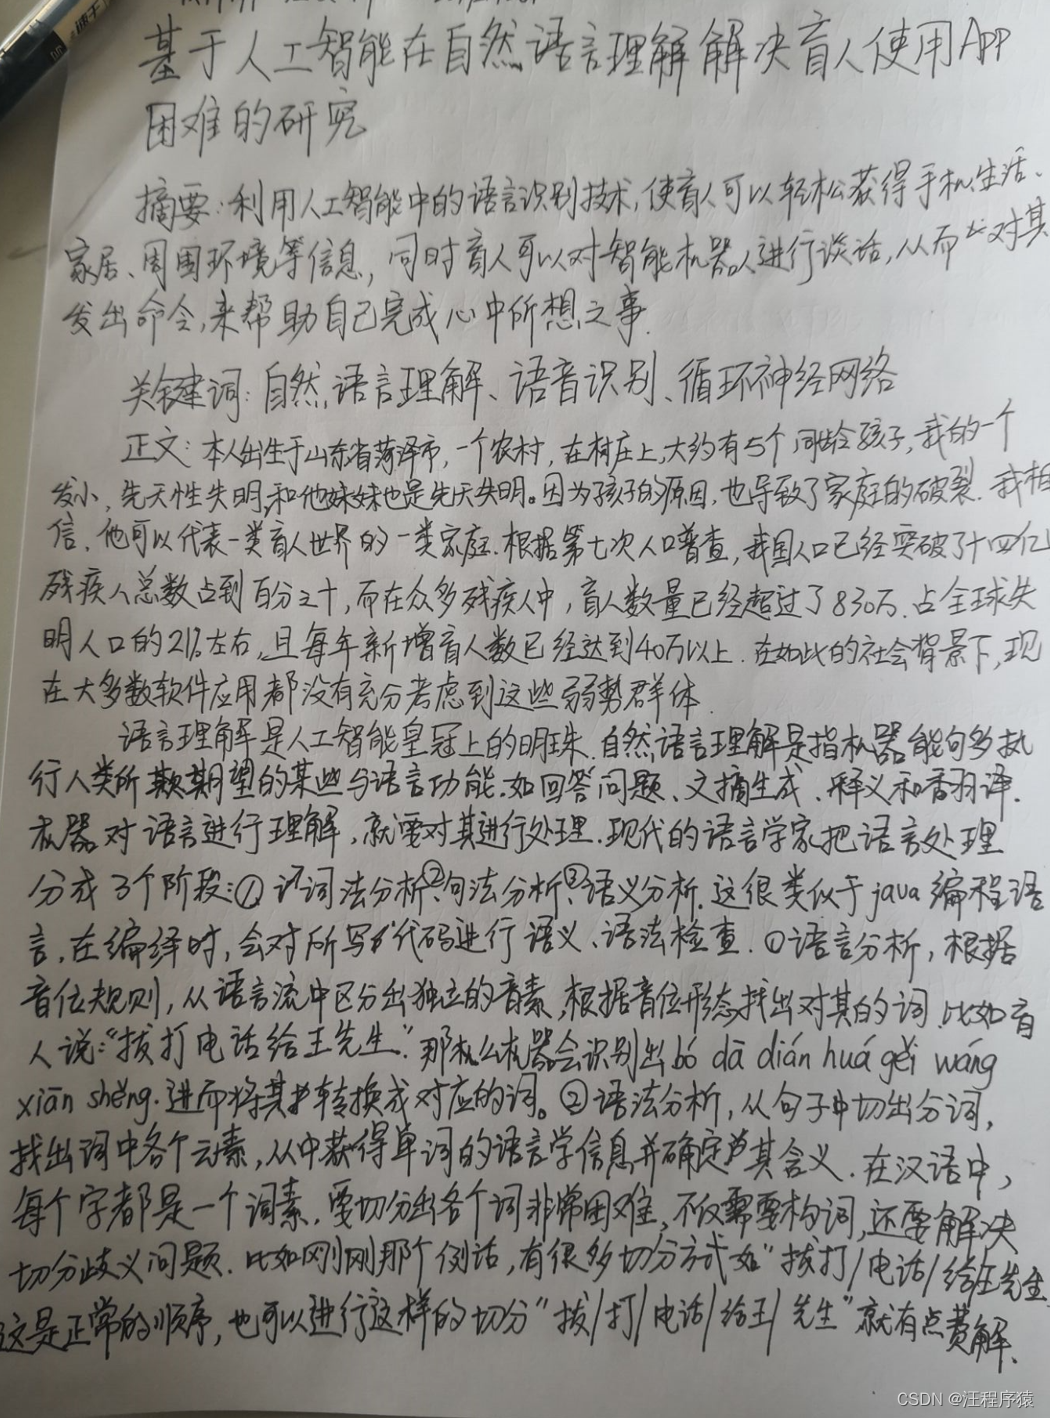 基于人工智能在自然语言理解解决盲人使用App
困难的研究
摘要:利用人工智能中的语言识别技术,使盲人可以轻松获得手机、生活、
家居、周围环境等信息,同时盲人可以对智能机器人进行谈话,从而 对其
发出命令,来帮助自己完成心中所想之事.
关键词:自然语言理解、语音识别、循环神经网络
正文:本人出生于山东省菏泽市,一个农村,在村庄上,大约有5个同龄孩子,我的一个
发小,先天性失明,和他妹妹也是先天失明。因为孩子的原因,也导致了家庭的破裂.我相
信,他可以代表一类盲人世界的一类家庭.根据第七次人口普查,我国人口已经突破了十四亿
残疾人总数占到百分之十,而在众多残疾人中,盲人数量已经超过了830万.占全球失
明人口的21%左右,且每年新增盲人数已经达到40万以上.在如此的社会背景下,现
在大多数软件应用都没有充分考虑到这些弱势群体.
语言理解是人工智能皇冠上的明珠.自然语言理解是指机器能向多执
行人类所期望的某些与语言功能.如回答问题、文摘生成、释义和翻译.
机器对语言进行理解,就要对其进行处理.现代的语言学家把语言处理
分成3个阶段:①词法分析②、句法分析、③语义分析.这很类似于java编程语
言,在编绎时,会对所写的代码进行语义、语法检查.①语言分析,根据
音位规则,从语言流中区分出独立的音素,根据音位形态找出对其的词.比如盲
人说:“拔打电话给王先生”.那么机器会识别出bó dā dián huá gěi wáng
xiān shēng.进而将其转换成对应的词。②语法分析,从句子中切出分词,
找出词中各个元素,从中获得单词的语言学信息并确定其含义.在汉语中,
每个字都是一个词素,要切分出各个词非常困难,不仅需要构词,还要解决
切分歧义问题.比如刚刚那个例话,有很多切分方式如“拔打/电话/给王先生
这是正常的顺序,也可以进行这样的切分“拔/打/电话/给王/先生”就有点费解.
CSDN @汪程序猿